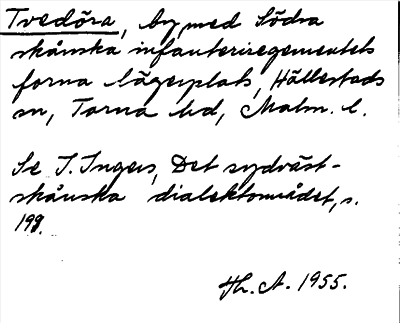 Tvedöra, by med Södra
skånska infanteriregementets
forna lägerplats, Hällestads
sn, Torna hd, Malm. l.
Se I. Ingers, Det sydväst-
skånska dialektområdet, s.
199.
Th. A. 1955.